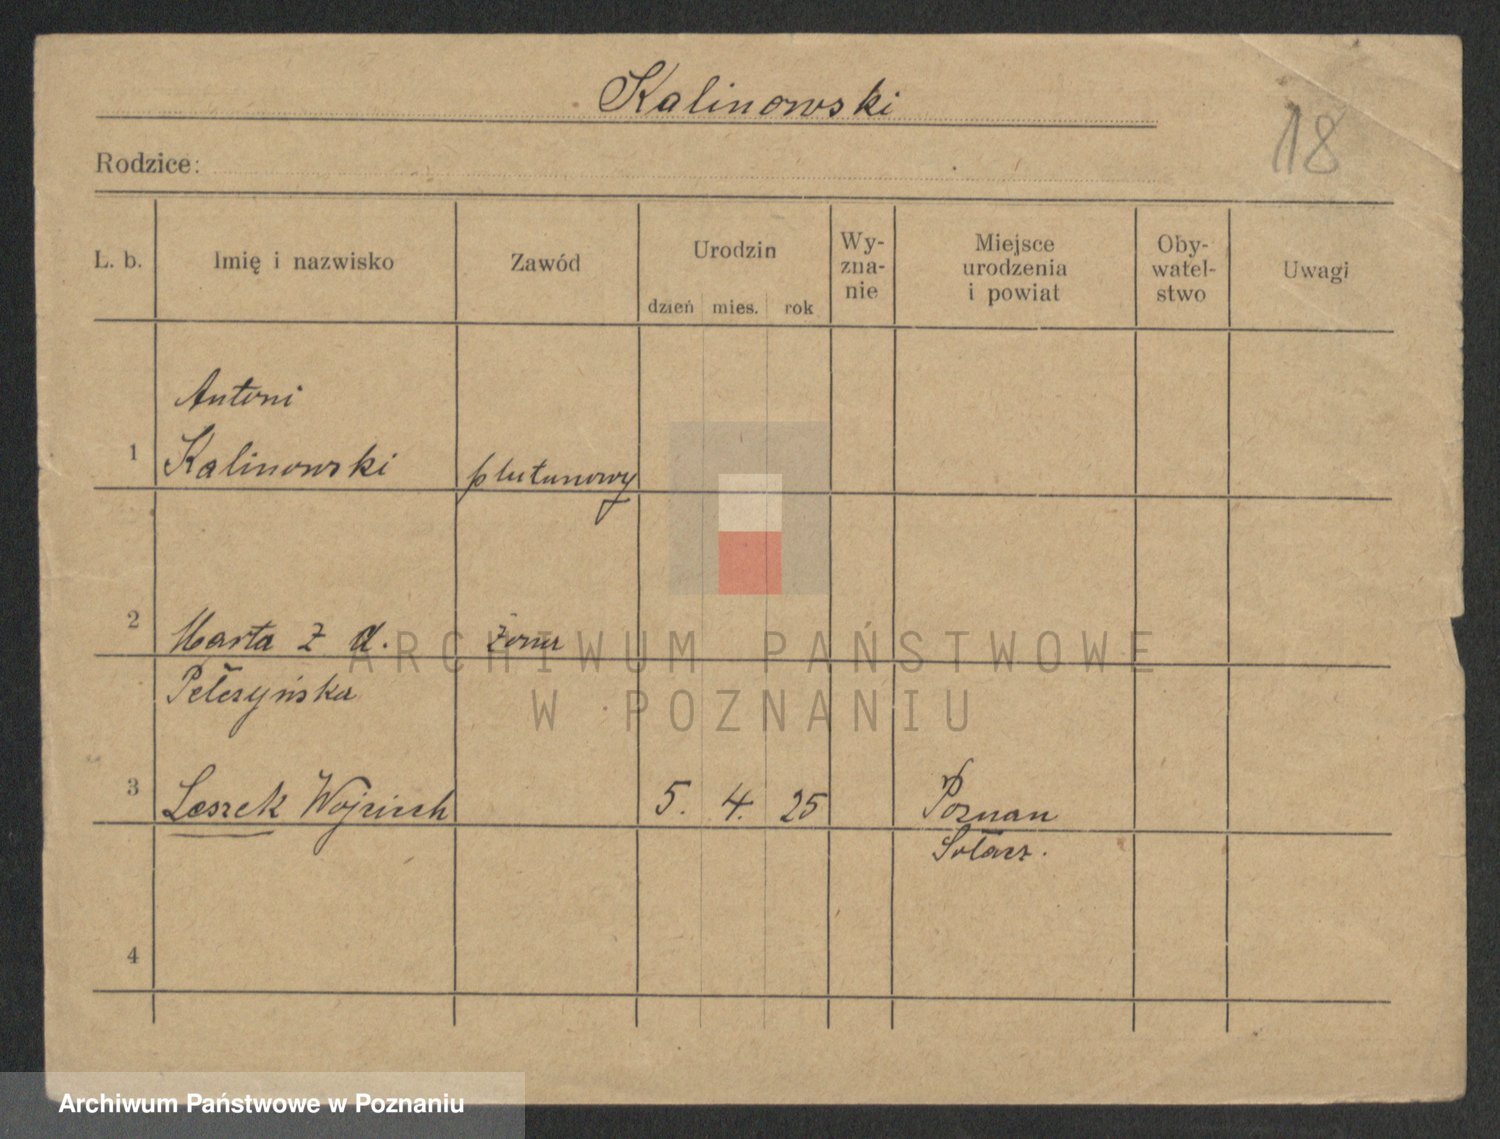 Kalinowski
18
Rodzice:
L. b. Imię i nazwisko Zawód Urodzin Wy-zna-nie Miejsce urodzenia i powiat Oby-watel-stwo Uwagi
dzień mies. rok
Antoni
1 Kalinowski plutunowy
2 Marta z d. żona
Pełczyńska
3 Leszek Wojciech 5. 4. 25 Poznan
Sołacz.
4
ARCHIWUM PAŃSTWOWE
W POZNANIU
Archiwum Państwowe w Poznaniu